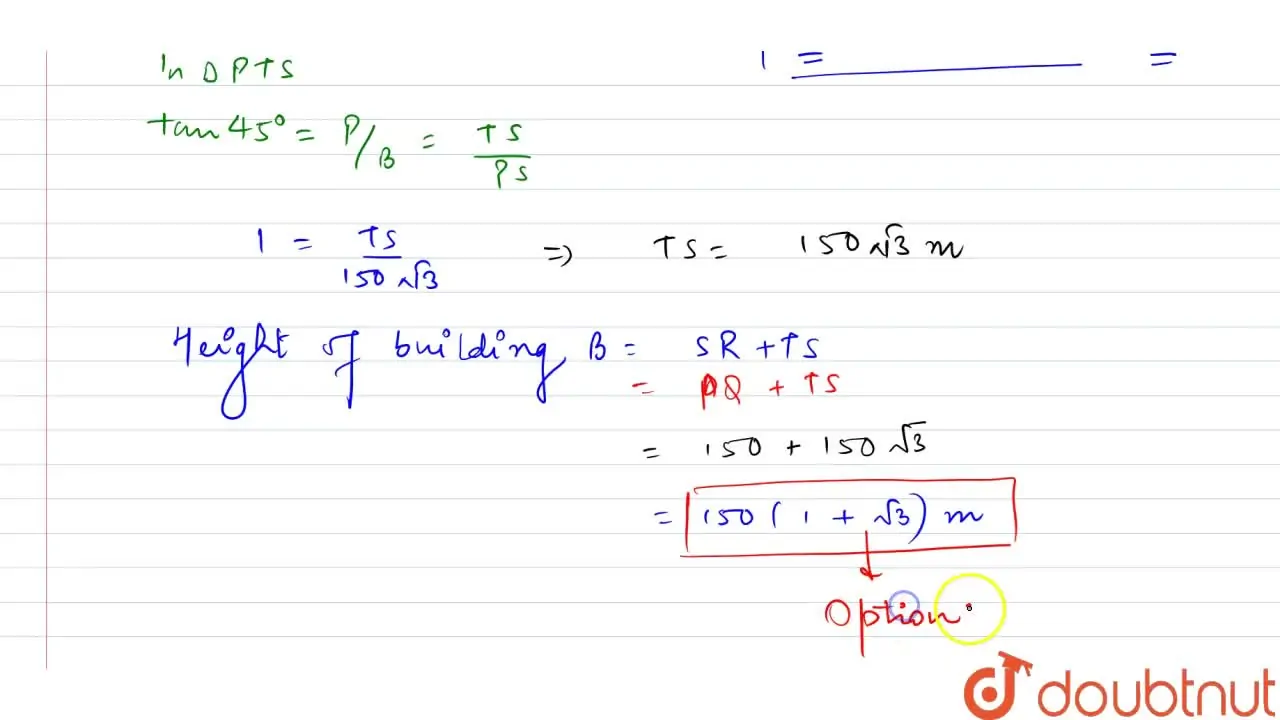 In Δ PTS
1 = =
tan 45° = P/B = TS/PS
1 = TS/150√3 ⇒ TS = 150√3 m
Height of building B = SR + TS
= PQ + TS
= 150 + 150√3
= 150(1 + √3) m
Option
doubtnut